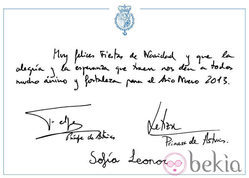 Muy felices Fiestas de Navidad y que la
alegría y la esperanza que traen nos den a todos
mucho ánimo y fortaleza para el Año Nuevo 2013.
Felipe
Letizia
Príncipe de Asturias
Princesa de Asturias.
Sofía Leonor
bekia